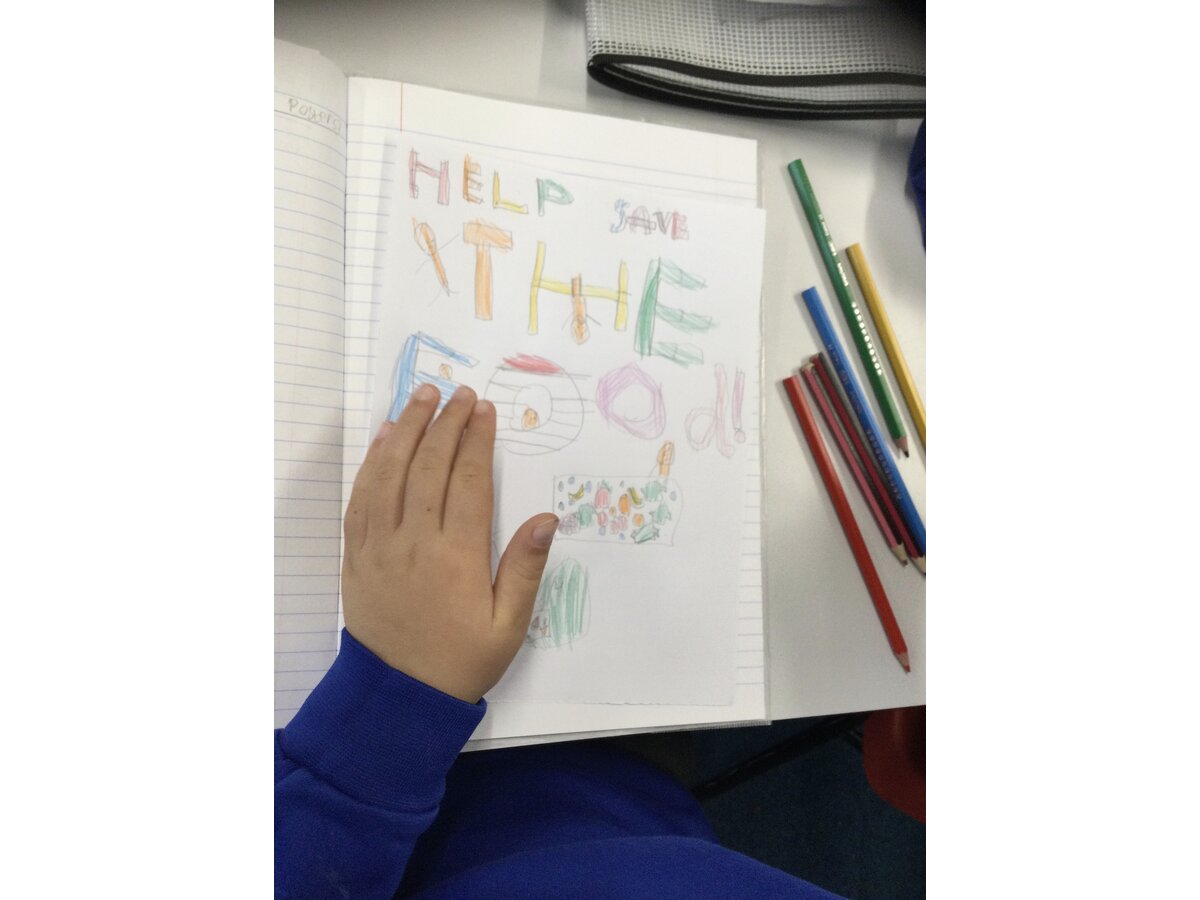 HELP SAVE
THE
FOOd!